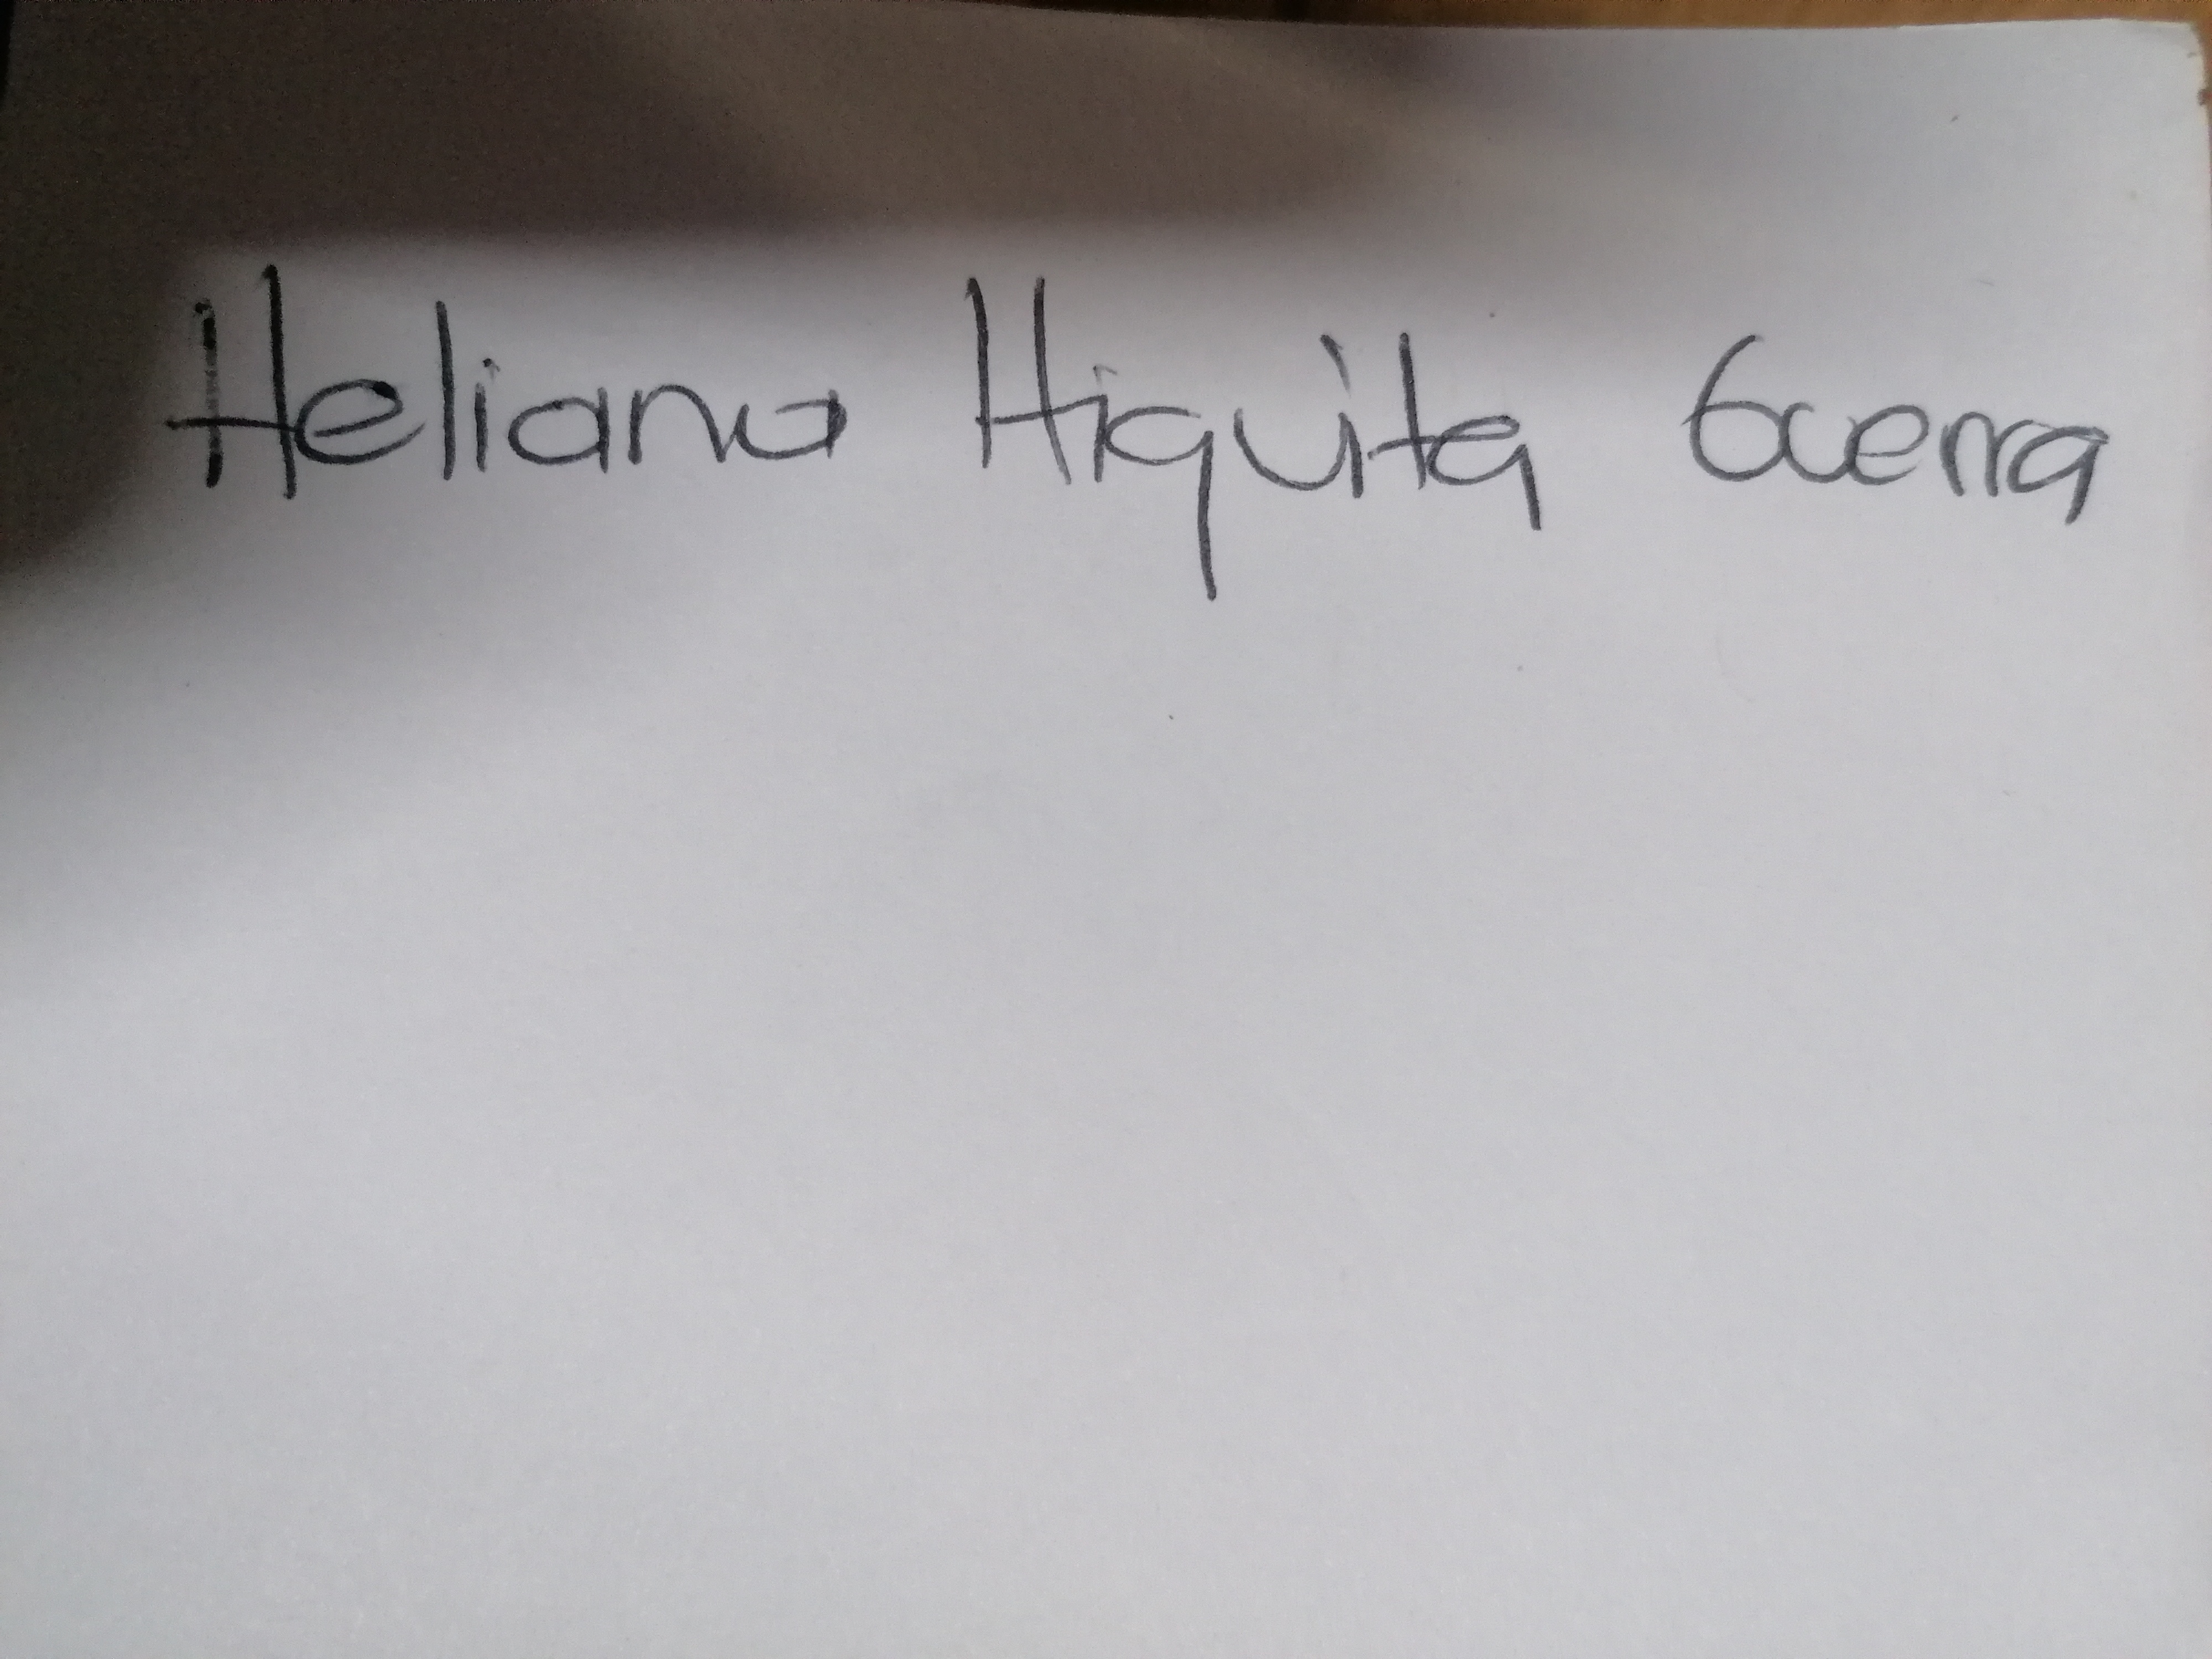 Heliana Hiquita Guerra